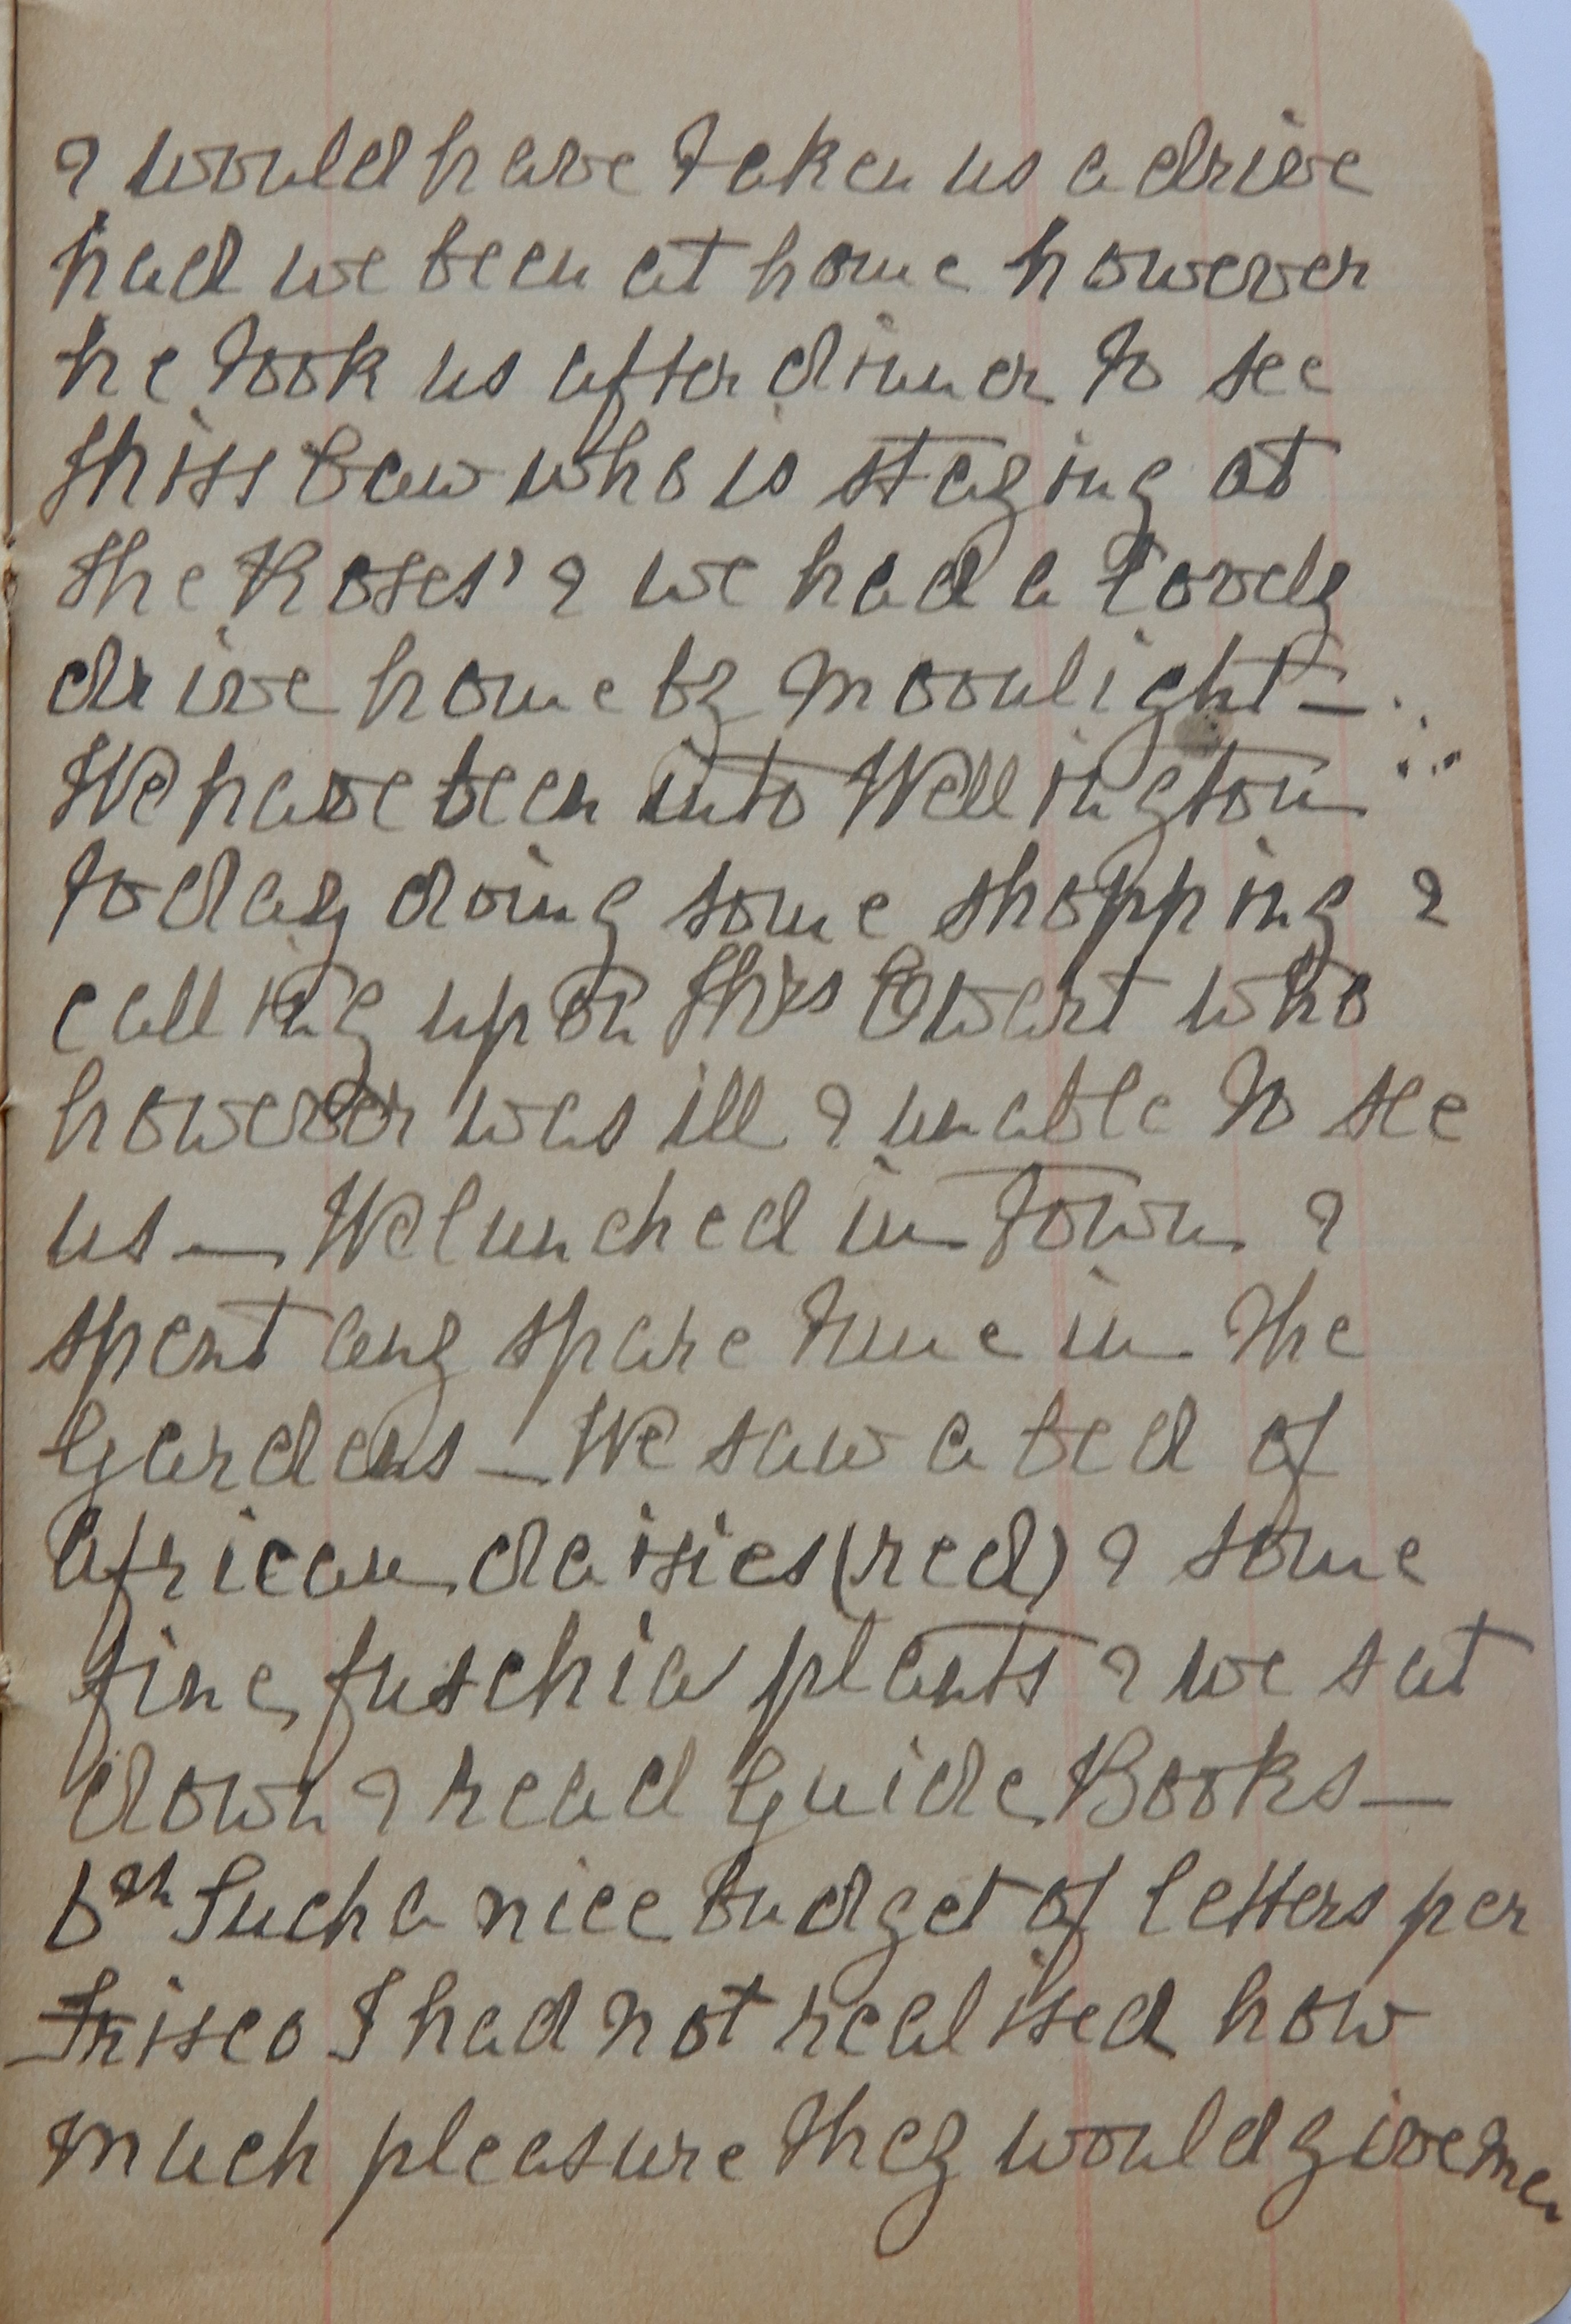 & would have taken us a drive
had we been at home however
he took us after dinner to see
Miss who is staying at
the Roses' & we had a lovely
drive home by moonlight —
We have been into Wellington
today doing some shopping &
calling upon Mrs Ewart who
however was ill & unable to see
us — We lunched in town &
spent any spare time in the
Gardens — We saw a bed of
African daisies (red) & some
fine fuschia plants & we sat
down & read Guide Books —
6th Such a nice budget of letters per
Frisco I had not realised how
much pleasure they would give me